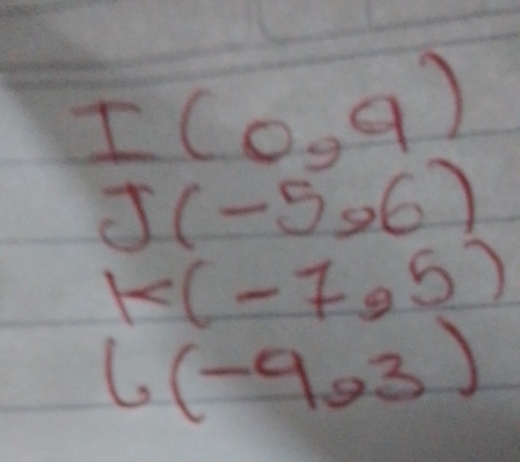 I(0,9)
J(-5,6)
K(-7,5)
L(-9,3)